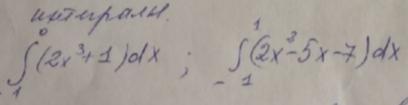 интегралы.
∫₋₁⁰(2x³+1)dx ; ∫₋₁¹(2x³-5x-7)dx